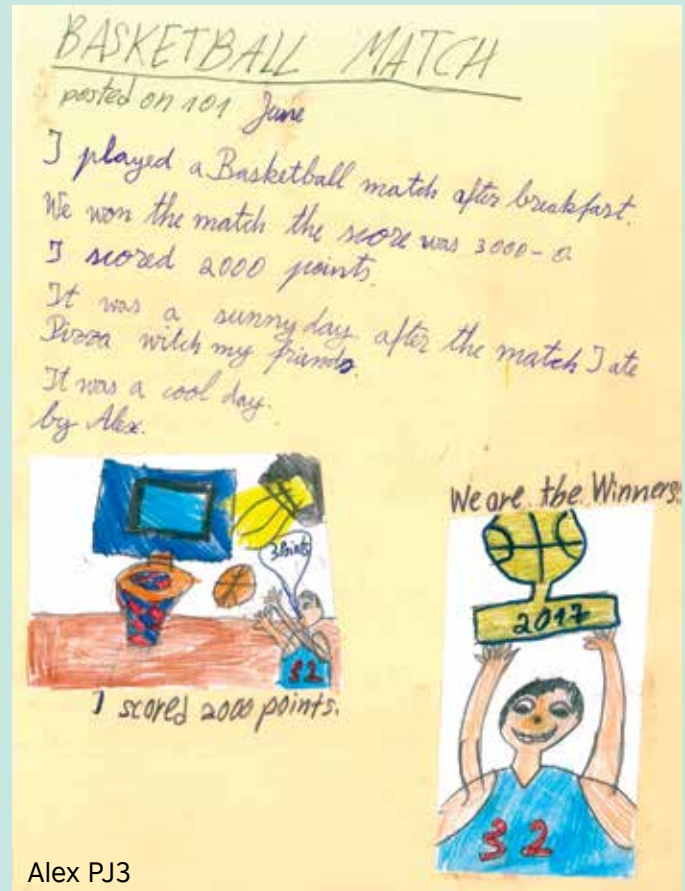 BASKETBALL MATCH
posted on 101 June
I played a Basketball match after breakfast.
We won the match the score was 3000-0
I scored 2000 points.
It was a sunny day. after the match I ate
Pizza witch my friends.
It was a cool day.
by Alex.
3 Points
32
I scored 2000 points.
We are the Winners!
2017
32
Alex PJ3